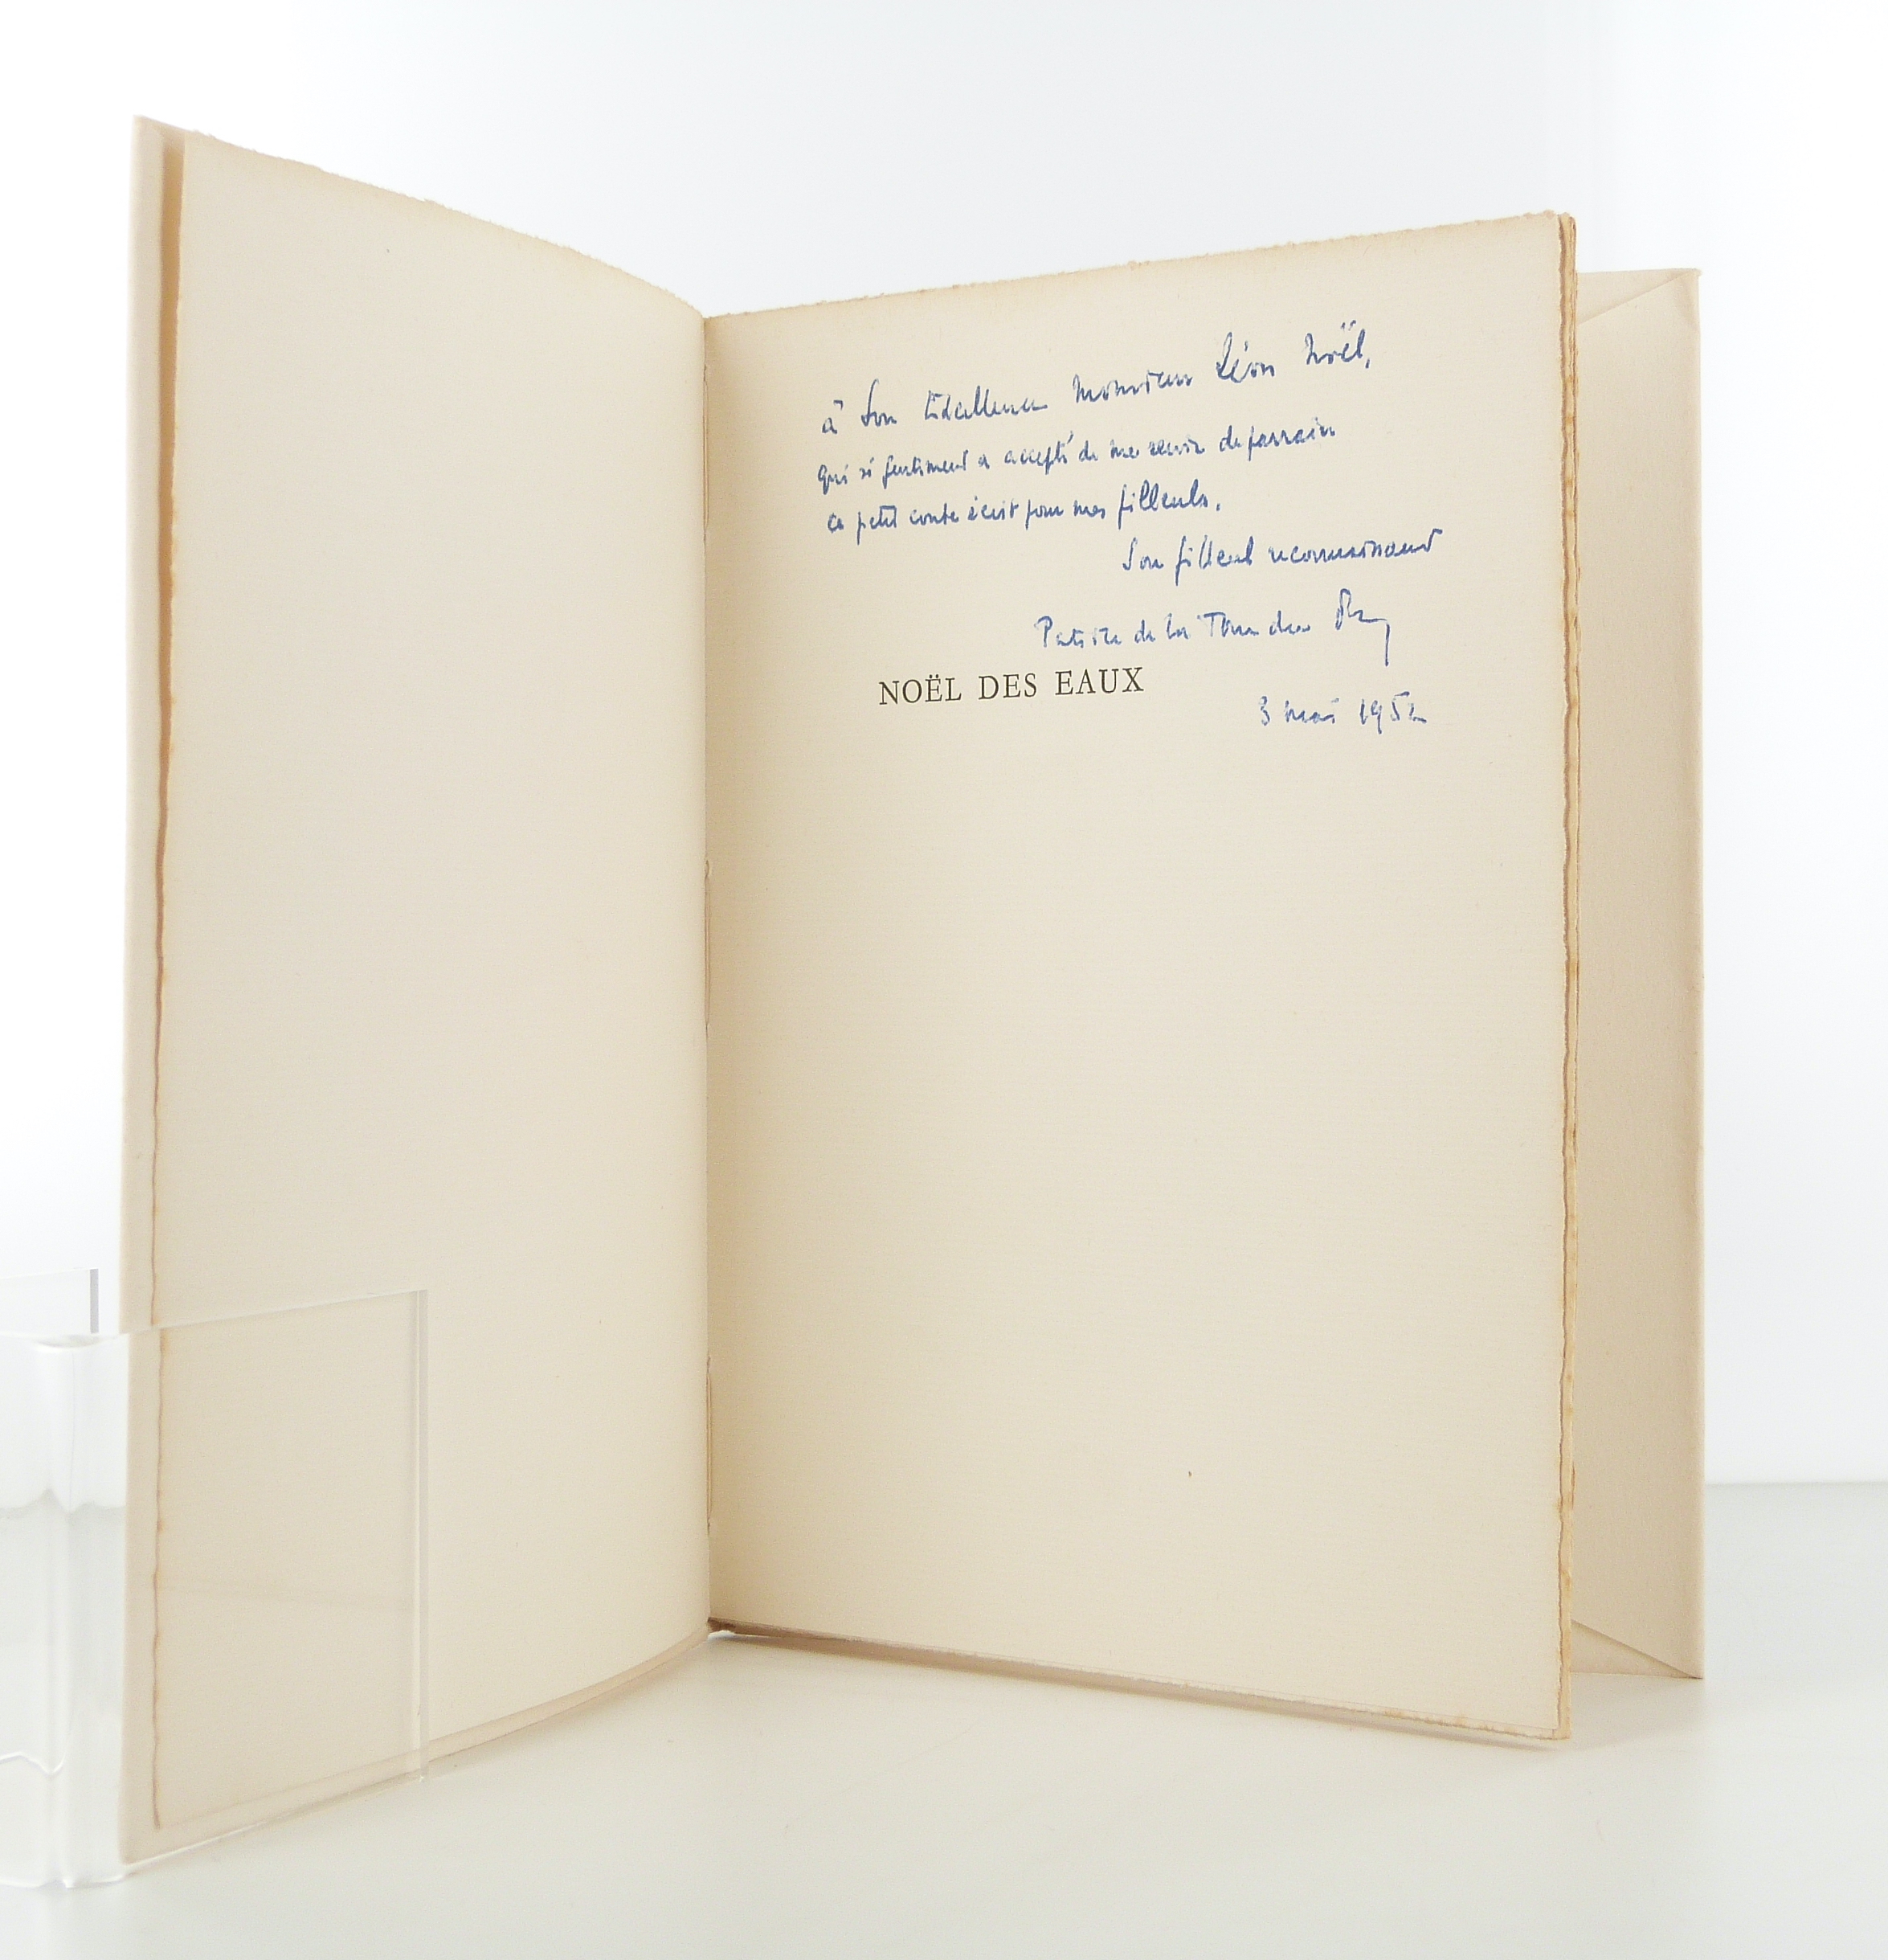 à Son Excellence Monsieur Léon Noël,
qui si gentiment a accepté de me servir de parrain
ce petit conte écrit pour mes filleuls.
Son filleul reconnaissant
Patrice de la Tour du Pin
NOËL DES EAUX
3 mai 1952